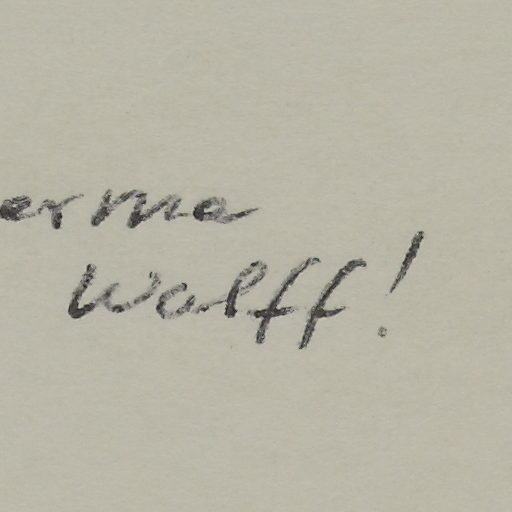 erma
Wolff!